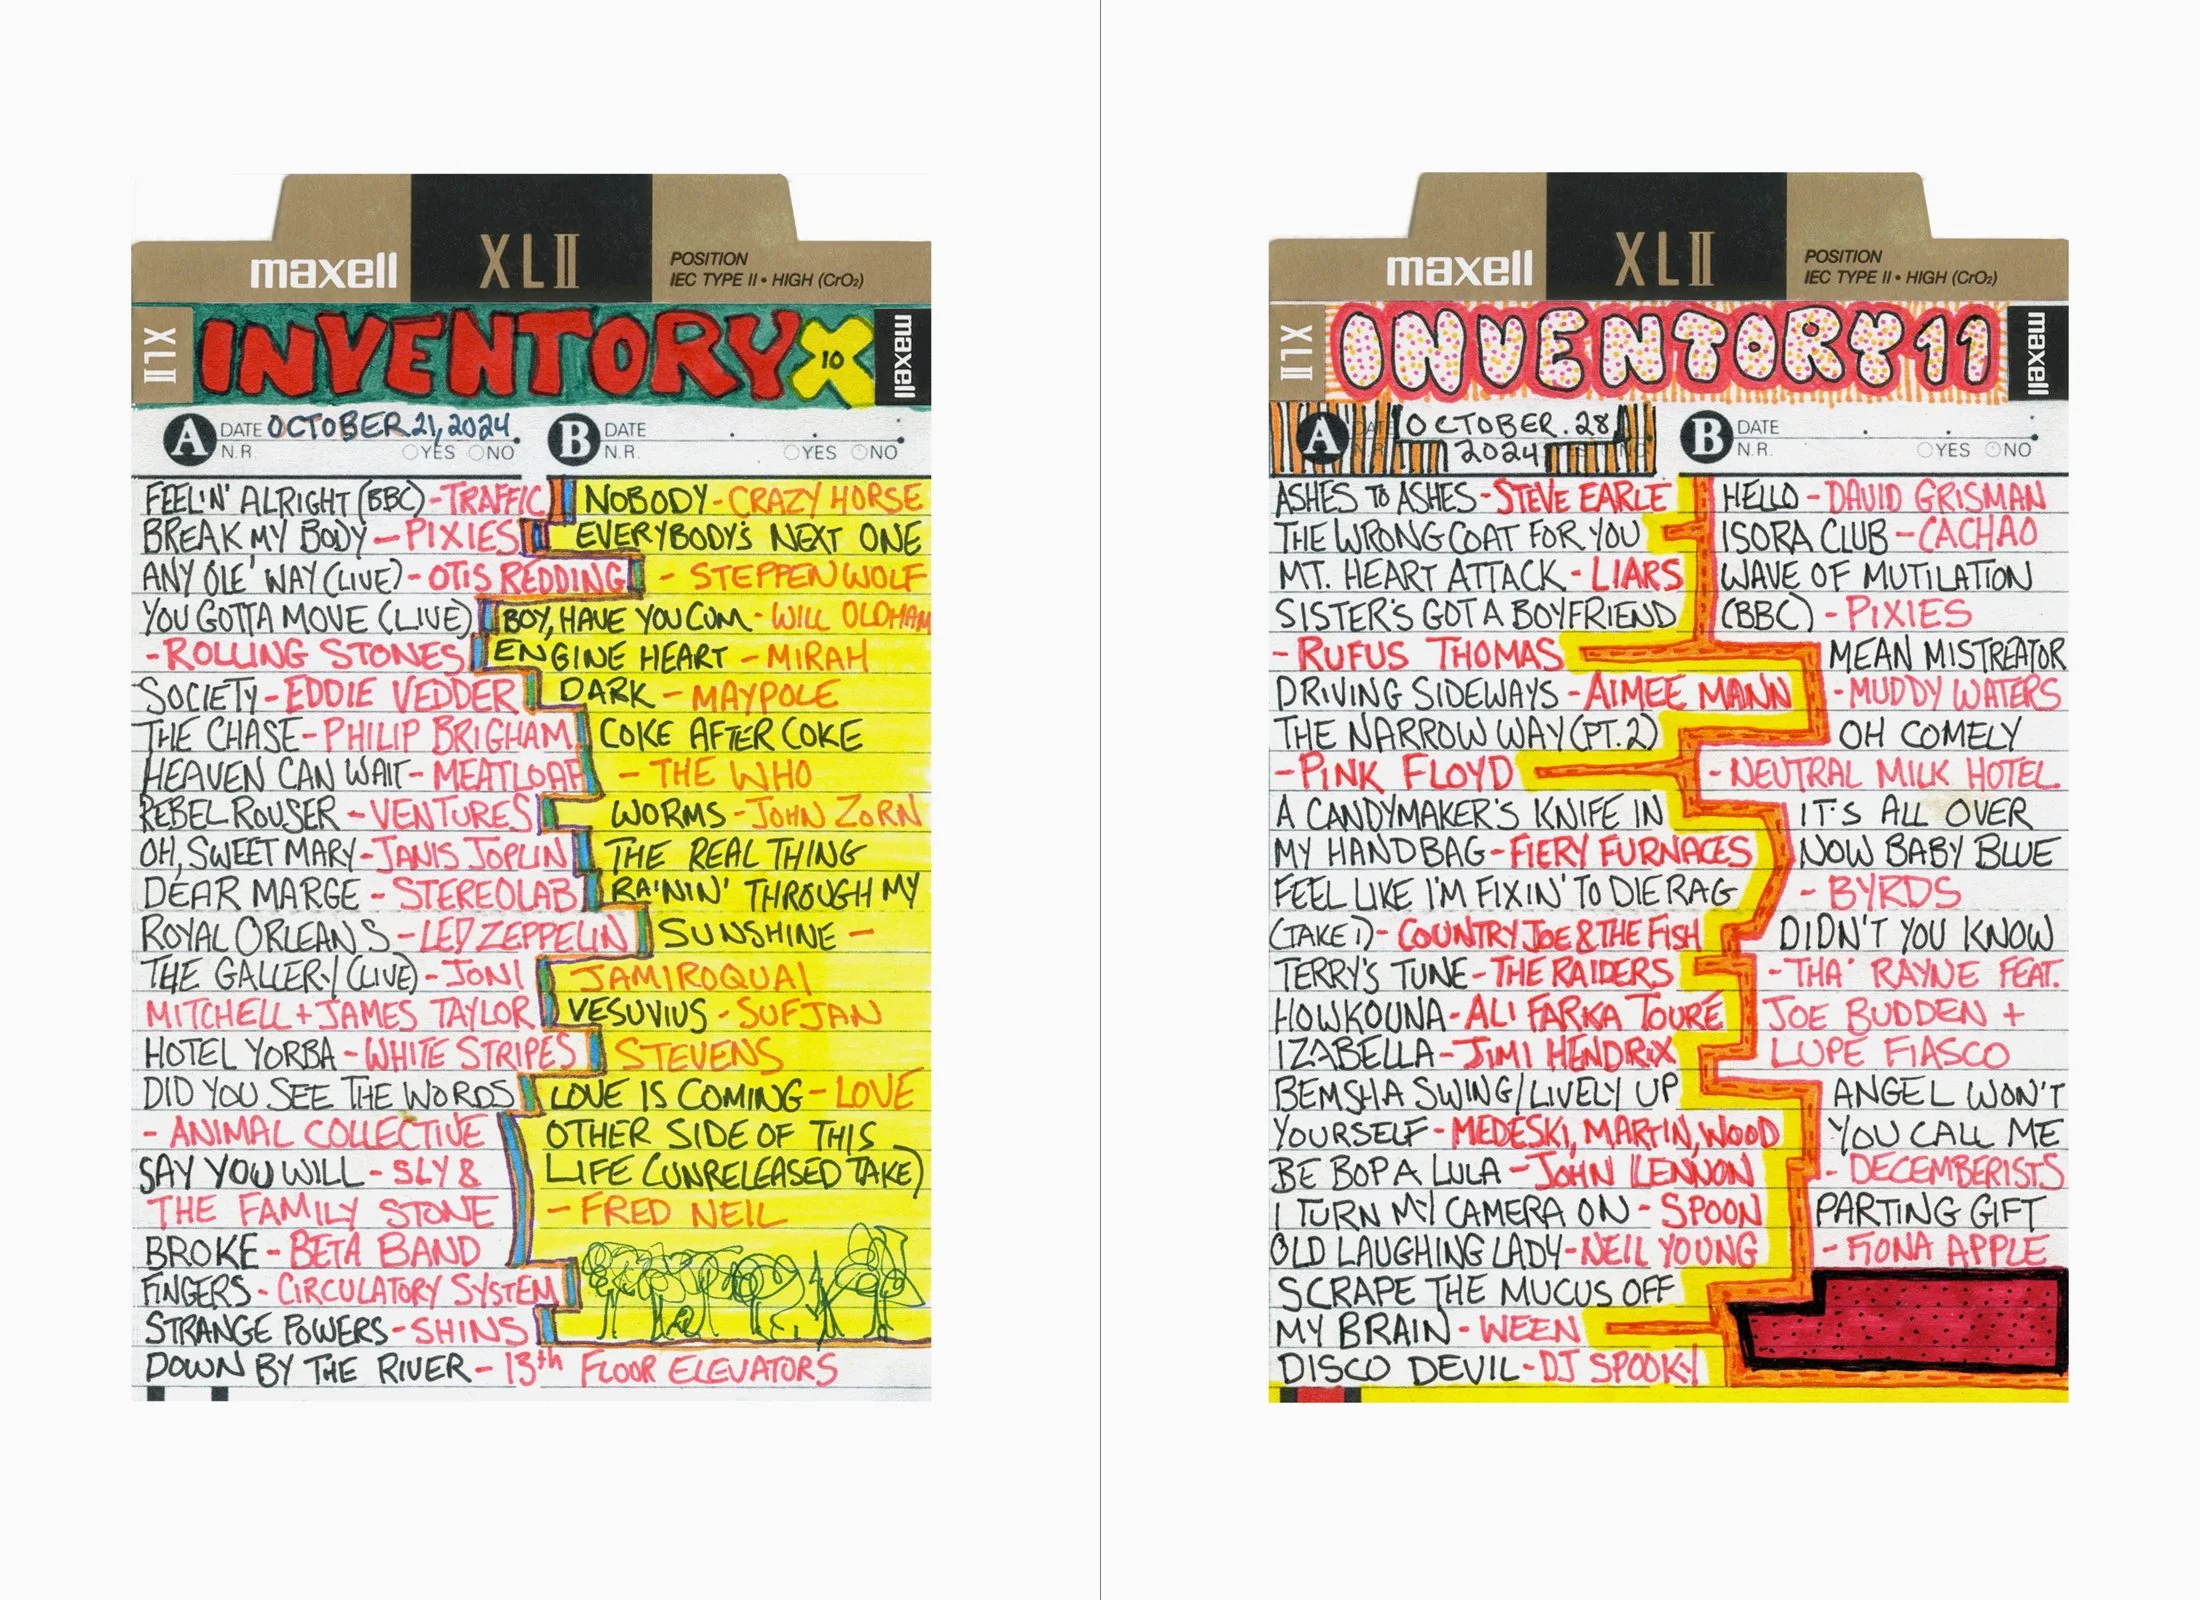 maxell
XLII
POSITION
IEC TYPE II • HIGH (CrO₂)
XLII
INVENTORY X
10
maxell
A
DATE OCTOBER 21, 2024
N.R. YES NO
B
DATE
N.R. YES NO
FEELIN' ALRIGHT (BBC) - TRAFFIC
BREAK MY BODY - PIXIES
ANY OLE' WAY (LIVE) - OTIS REDDING
YOU GOTTA MOVE (LIVE)
- ROLLING STONES
SOCIETY - EDDIE VEDDER
THE CHASE - PHILIP BRIGHAM
HEAVEN CAN WAIT - MEATLOAF
REBEL ROUSER - VENTURES
OH, SWEET MARY - JANIS JOPLIN
DEAR MARGE - STEREOLAB
ROYAL ORLEANS - LED ZEPPELIN
THE GALLERY (LIVE) - JONI
MITCHELL + JAMES TAYLOR
HOTEL YORBA - WHITE STRIPES
DID YOU SEE THE WORDS
- ANIMAL COLLECTIVE
SAY YOU WILL - SLY &
THE FAMILY STONE
BROKE - BETA BAND
FINGERS - CIRCULATORY SYSTEM
STRANGE POWERS - SHINS
DOWN BY THE RIVER - 13th FLOOR ELEVATORS
NOBODY - CRAZY HORSE
EVERYBODY'S NEXT ONE
- STEPPENWOLF
BOY, HAVE YOU CUM - WILL OLDHAM
ENGINE HEART - MIRAH
DARK - MAYPOLE
COKE AFTER COKE
- THE WHO
WORMS - JOHN ZORN
THE REAL THING
RAININ' THROUGH MY
SUNSHINE -
JAMIROQUAI
VESUVIUS - SUFJAN
STEVENS
LOVE IS COMING - LOVE
OTHER SIDE OF THIS
LIFE (UNRELEASED TAKE)
- FRED NEIL
maxell
XLII
POSITION
IEC TYPE II • HIGH (CrO₂)
XLII
INVENTORY 11
maxell
A
OCTOBER. 28
2024
B
DATE
N.R. YES NO
ASHES TO ASHES - STEVE EARLE
THE WRONG COAT FOR YOU
MT. HEART ATTACK - LIARS
SISTER'S GOT A BOYFRIEND
- RUFUS THOMAS
DRIVING SIDEWAYS - AIMEE MANN
THE NARROW WAY (PT. 2)
- PINK FLOYD
A CANDYMAKER'S KNIFE IN
MY HANDBAG - FIERY FURNACES
FEEL LIKE I'M FIXIN' TO DIE RAG
(TAKE 1) - COUNTRY JOE & THE FISH
TERRY'S TUNE - THE RAIDERS
HOWKOUNA - ALI FARKA TOURÉ
IZABELLA - JIMI HENDRIX
BEMSHA SWING/LIVELY UP
YOURSELF - MEDESKI, MARTIN, WOOD
BE BOP A LULA - JOHN LENNON
I TURN MY CAMERA ON - SPOON
OLD LAUGHING LADY - NEIL YOUNG
SCRAPE THE MUCUS OFF
MY BRAIN - WEEN
DISCO DEVIL - DJ SPOOKY
HELLO - DAVID GRISMAN
ISORA CLUB - CACHAO
WAVE OF MUTILATION
(BBC) - PIXIES
MEAN MISTREATOR
- MUDDY WATERS
OH COMELY
- NEUTRAL MILK HOTEL.
IT'S ALL OVER
NOW BABY BLUE
- BYRDS
DIDN'T YOU KNOW
- THA' RAYNE FEAT.
JOE BUDDEN +
LUPE FIASCO
ANGEL WON'T
YOU CALL ME
- DECEMBERISTS
PARTING GIFT
- FIONA APPLE